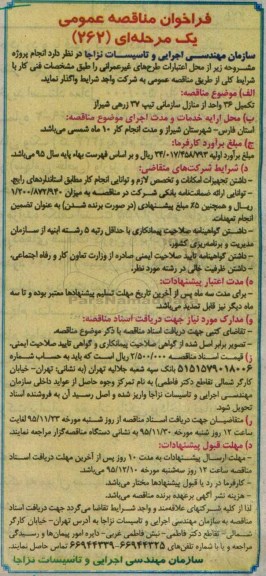 فراخوان مناقصه عمومی
یک مرحله‌ای (۲۶۲)
سازمان مهندسی اجرایی و تاسیسات نزاجا در نظر دارد انجام پروژه
مشروحه زیر از محل اعتبارات طرح‌های غیرعمرانی را طبق مشخصات فنی کار با
شرایط کلی از طریق مناقصه عمومی به شرکت واجد شرایط واگذار نماید.
الف) موضوع مناقصه:
تکمیل ۳۶ واحد از منازل سازمانی تیپ ۳۷ زرهی شیراز
ب) محل ارایه خدمات و مدت اجرای موضوع مناقصه:
استان فارس- شهرستان شیراز و مدت انجام کار ۱۰ ماه شمسی می‌باشد.
ج) مبلغ برآورد کارفرما:
مبلغ برآورد اولیه ۲۴/۰۱۷/۴۵۸/۷۹۳ ریال و بر اساس فهرست بهاء پایه سال ۹۵ می‌باشد.
د) شرایط شرکت‌های متقاضی:
- داشتن تجهیزات امکانات و تخصص لازم و توانایی انجام کار مطابق استانداردهای رایج.
- توانایی ارائه ضمانت‌نامه بانکی شرکت در مناقصه به میزان ۱/۲۰۰/۸۷۲/۹۴۰
ریال و همچنین ۵٪ مبلغ پیشنهادی (در صورت برنده شدن) به عنوان تضمین
انجام تعهدات.
- داشتن گواهینامه صلاحیت پیمانکاری با حداقل رتبه ۵ رشته ابنیه از سازمان
مدیریت و برنامه‌ریزی کشور.
- داشتن گواهینامه تایید صلاحیت ایمنی صادره از وزارت تعاون کار و رفاه اجتماعی.
- داشتن ظرفیت خالی در رشته مورد نظر.
ه) مدت اعتبار پیشنهادات:
- برای مدت سه ماه پس از آخرین تاریخ مهلت تسلیم پیشنهادها معتبر بوده و تا سه
ماه دیگر نیز قابل تمدید می‌باشد.
و) مدارک مورد نیاز جهت دریافت اسناد مناقصه:
- تقاضای کتبی جهت دریافت اسناد مناقصه با ذکر موضوع مناقصه.
- تصویر برابر اصل شده از گواهی صلاحیت پیمانکاری و گواهی تایید صلاحیت ایمنی
ز) قیمت اسناد مناقصه ۲/۵۰۰/۰۰۰ ریال است که باید به حساب شماره
۵۱۵۱۵۷۹۰۱۸۰۰۶ بانک سپه شعبه جلالیه تهران (به نشانی: تهران- خیابان
کارگر شمالی تقاطع دکتر فاطمی) به نام تمرکز وجوه حاصل از عواید داخلی سازمان
مهندسی اجرایی و تاسیسات نزاجا واریز شده و اصل رسید آن به فروشنده اسناد
تحویل شود.
ژ) متقاضیان جهت دریافت اسناد مناقصه از روز شنبه مورخه ۹۵/۱۱/۲۳ لغایت
ساعت ۱۲ روز شنبه مورخه ۹۵/۱۱/۳۰ به نشانی دستگاه مناقصه‌گزار مراجعه نمایند.
د) مهلت قبول پیشنهادات:
- مهلت ارسال پیشنهادات به مدت ۱۰ روز پس از آخرین مهلت دریافت اسناد
مناقصه ساعت ۱۲ روز سه‌شنبه مورخه ۹۵/۱۲/۱۰ می‌باشد.
- کارفرما در رد یا قبول پیشنهادها مختار می‌باشد.
- هزینه نشر آگهی برعهده برنده مناقصه می‌باشد.
لذا از کلیه شرکتهای علاقمند و واجد شرایط تقاضا می‌گردد جهت دریافت اسناد
مناقصه به سازمان مهندسی اجرایی و تاسیسات نزاجا به آدرس تهران- خیابان کارگر
شمالی- تقاطع دکتر فاطمی- نبش فاطمی غربی- دایره امور پیمان‌ها و رسیدگی
مراجعه و یا با شماره تلفن‌های ۶۶۹۴۴۳۲۵-۶۶۹۴۴۳۳۹ تماس حاصل نمایند.
سازمان مهندسی اجرایی و تاسیسات نزاجا